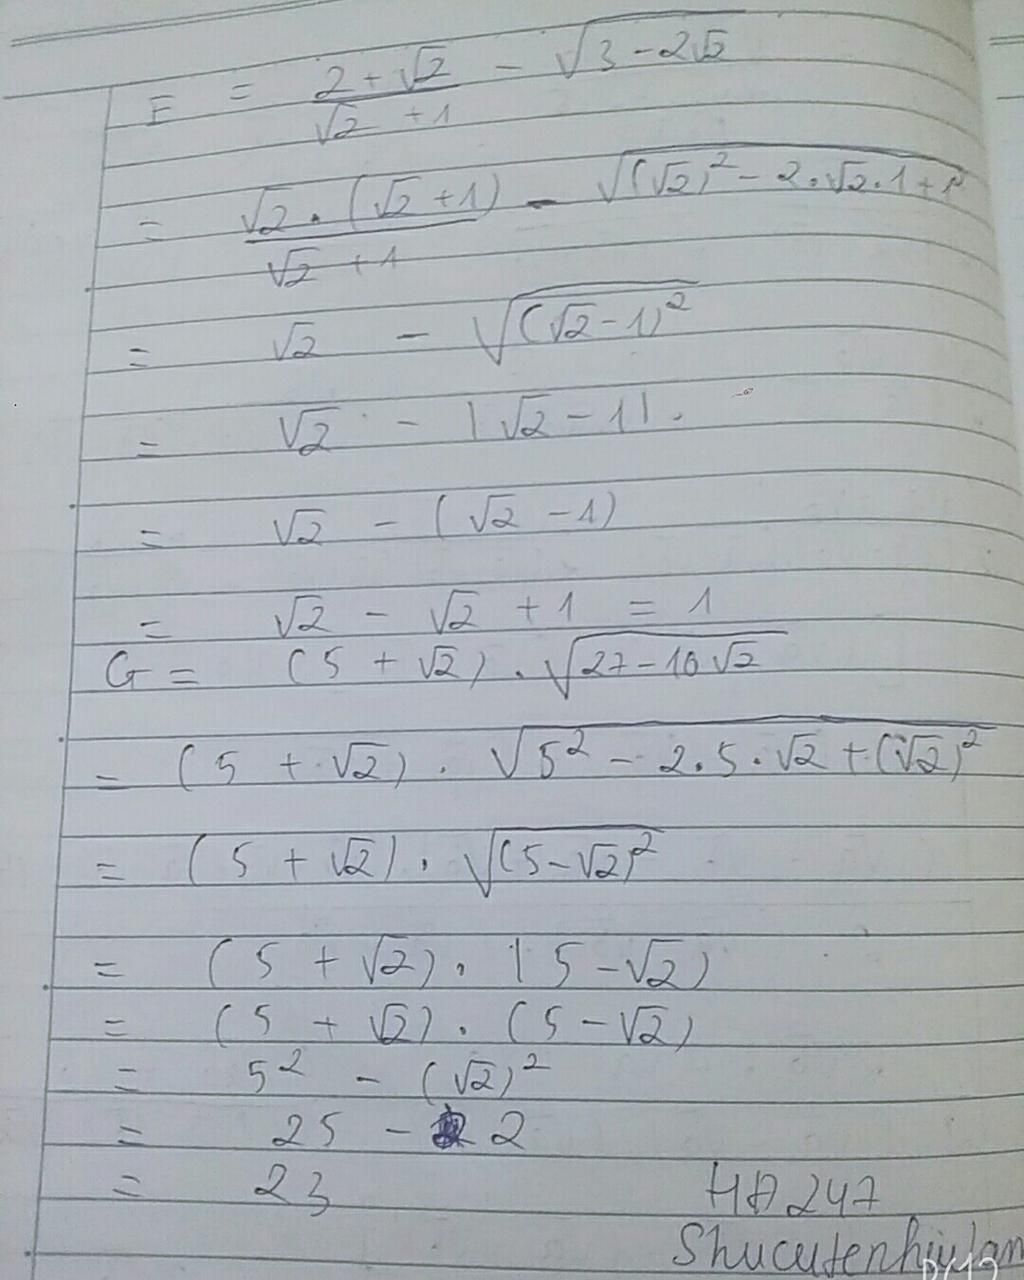 F = (2 + √2)/(√2 + 1) - √(3 - 2√2)
= (√2 . (√2 + 1))/(√2 + 1) - √((√2)² - 2.√2.1 + 1²)
= √2 - √((√2 - 1)²)
= √2 - |√2 - 1|.
= √2 - (√2 - 1)
= √2 - √2 + 1 = 1
G = (5 + √2) . √(27 - 10√2)
= (5 + √2) . √(5² - 2.5.√2 + (√2)²)
= (5 + √2) . √((5 - √2)²)
= (5 + √2) . |5 - √2)
= (5 + √2) . (5 - √2)
= 5² - (√2)²
= 25 - 2
= 23
HA247